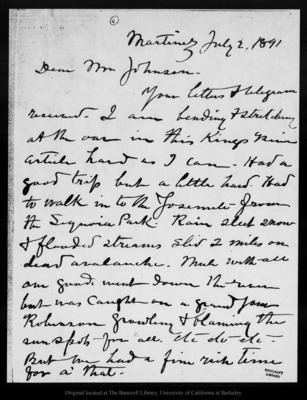 Martinez July 2, 1891
Dear Mr Johnson.
Your letters & telegram
received. I am bending & stretching
at the oar in this Kings River
article hard as I can. Had a
good trip but a little hard. Had
to walk in to the Yosemite from
the Sequoia Park. Rain sleet snow
& flooded streams. Slid 2 miles on
dead avalanche. Mule with all
our goods went down the river
but was caught on a jam
Robinson growling & blaming the
sunspots for all. etc etc etc -
But we had a fine rich time
for a' that.
BANCROFT
LIBRARY
Original located at The Bancroft Library, University of California at Berkeley